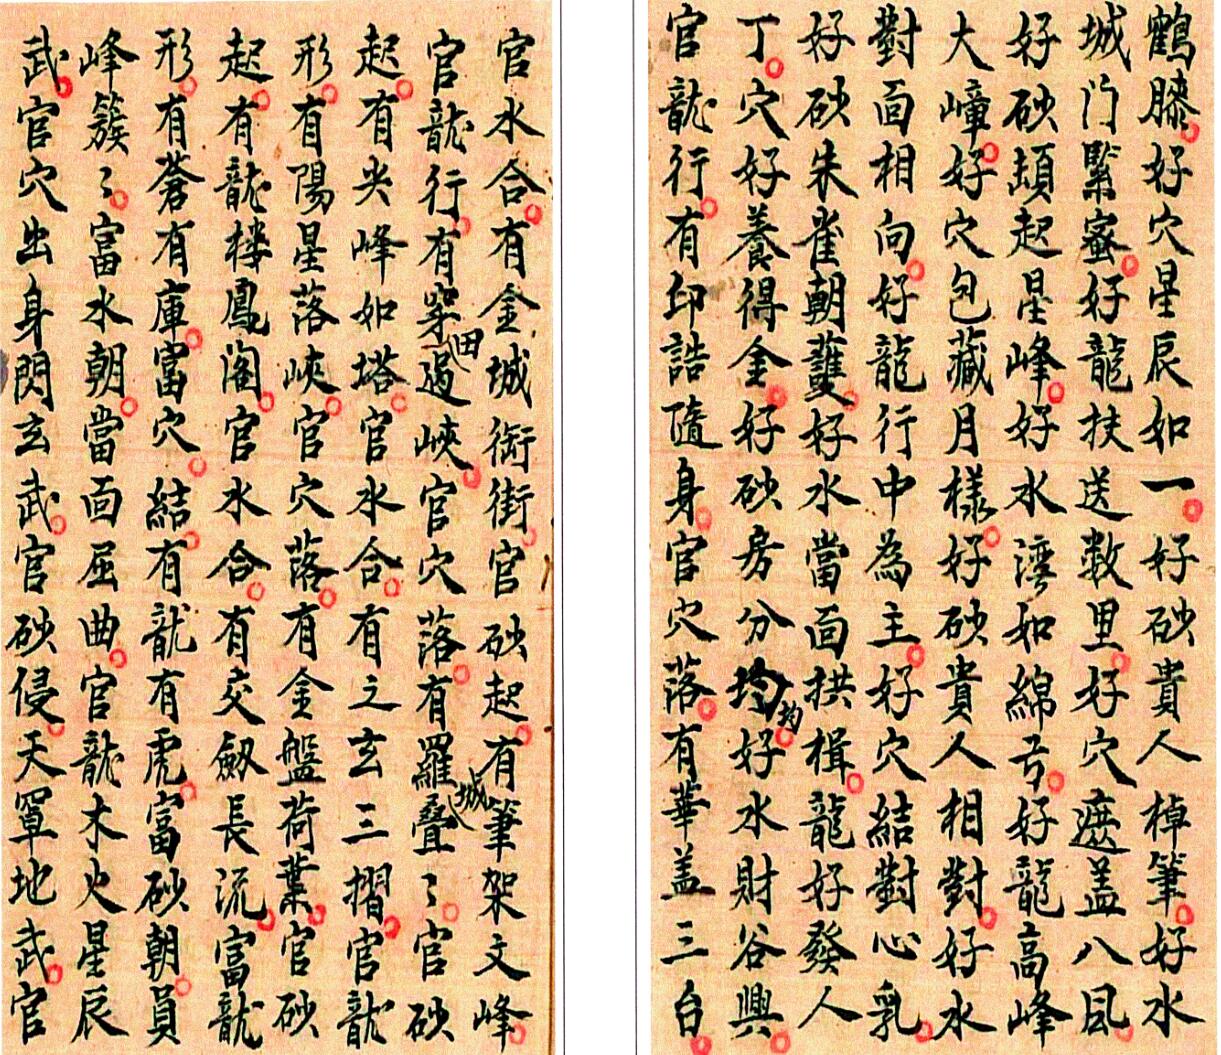 鶴膝好穴星辰如一好砂貴人棹筆好水
城门緊密好龍扶送数里好穴遮盖八風
好砂頓起星峰好水湾如綿弓好龍高峰
大嶂好穴包藏月樣好砂貴人相對好水
對面相向好龍行中為主好穴結對心乳
好砂朱雀朝護好水當面拱楫龍好發人
丁穴好養得金好砂房分均均好水財谷興
官龍行有印誥隨身官穴落有華盖三台
官水合有金城衙街官砂起有筆架文峰
官龍行有穿田過峽官穴落有羅城叠〻官砂
起有尖峰如塔官水合有之玄三摺官龍
形有陽星落峽官穴落有金盤荷葉官砂
起有龍樓鳳阁官水合有交劔長流富龍
形有蒼有庫富穴結有龍有虎富砂朝員
峰簇〻富水朝當面屈曲官龍木火星辰
武官穴出身閃玄武官砂侵天罩地武官